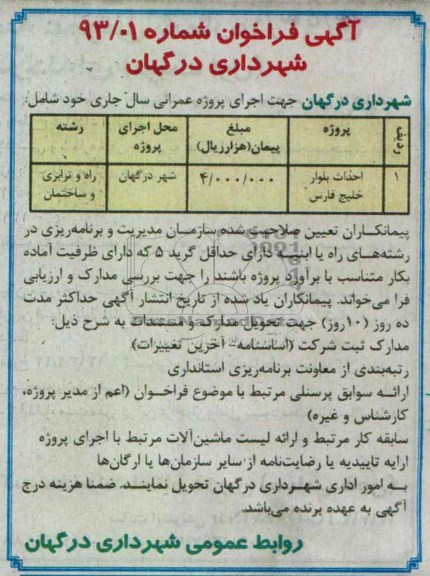 آگهی فراخوان شماره ۹۳/۰۱
شهرداری درگهان
شهرداری درگهان جهت اجرای پروژه عمرانی سال جاری خود شامل:
ردیف پروژه مبلغ پیمان(هزارریال) محل اجرای پروژه رشته
۱ احداث بلوار خلیج فارس ۴/۰۰۰/۰۰۰ شهر درگهان راه و ترابری و ساختمان
پیمانکاران تعیین صلاحیت شده سازمان مدیریت و برنامه‌ریزی در
رشته‌های راه یا ابنیه دارای حداقل گرید ۵ که دارای ظرفیت آماده
بکار متناسب با برآورد پروژه باشند را جهت بررسی مدارک و ارزیابی
فرا می‌خواند. پیمانکاران یاد شده از تاریخ انتشار آگهی حداکثر مدت
ده روز (۱۰روز) جهت تحویل مدارک و مستندات به شرح ذیل:
مدارک ثبت شرکت (اساسنامه- آخرین تغییرات)
رتبه‌بندی از معاونت برنامه‌ریزی استانداری
ارائه سوابق پرسنلی مرتبط با موضوع فراخوان (اعم از مدیر پروژه،
کارشناس و غیره)
سابقه کار مرتبط و ارائه لیست ماشین‌آلات مرتبط با اجرای پروژه
ارایه تاییدیه یا رضایت‌نامه از سایر سازمان‌ها یا ارگان‌ها
به امور اداری شهرداری درگهان تحویل نمایند. ضمنا هزینه درج
آگهی به عهده برنده می‌باشد.
روابط عمومی شهرداری درگهان